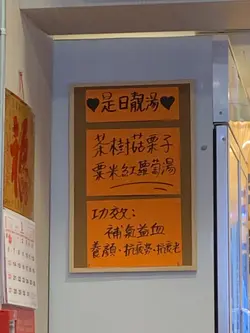 ♥是日靚湯♥
茶樹菇栗子
粟米紅蘿蔔湯
功效:
補氣益血
養顏、抗疲勞、抗衰老
福